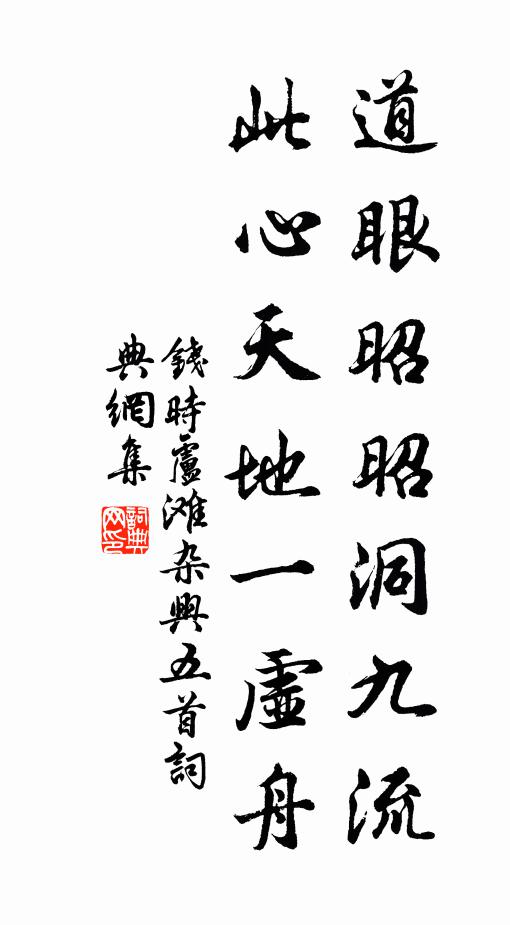 道眼昭昭洞九流
此心天地一虛舟
錢時盧滩杂興五首詞
典網集
詞典网印